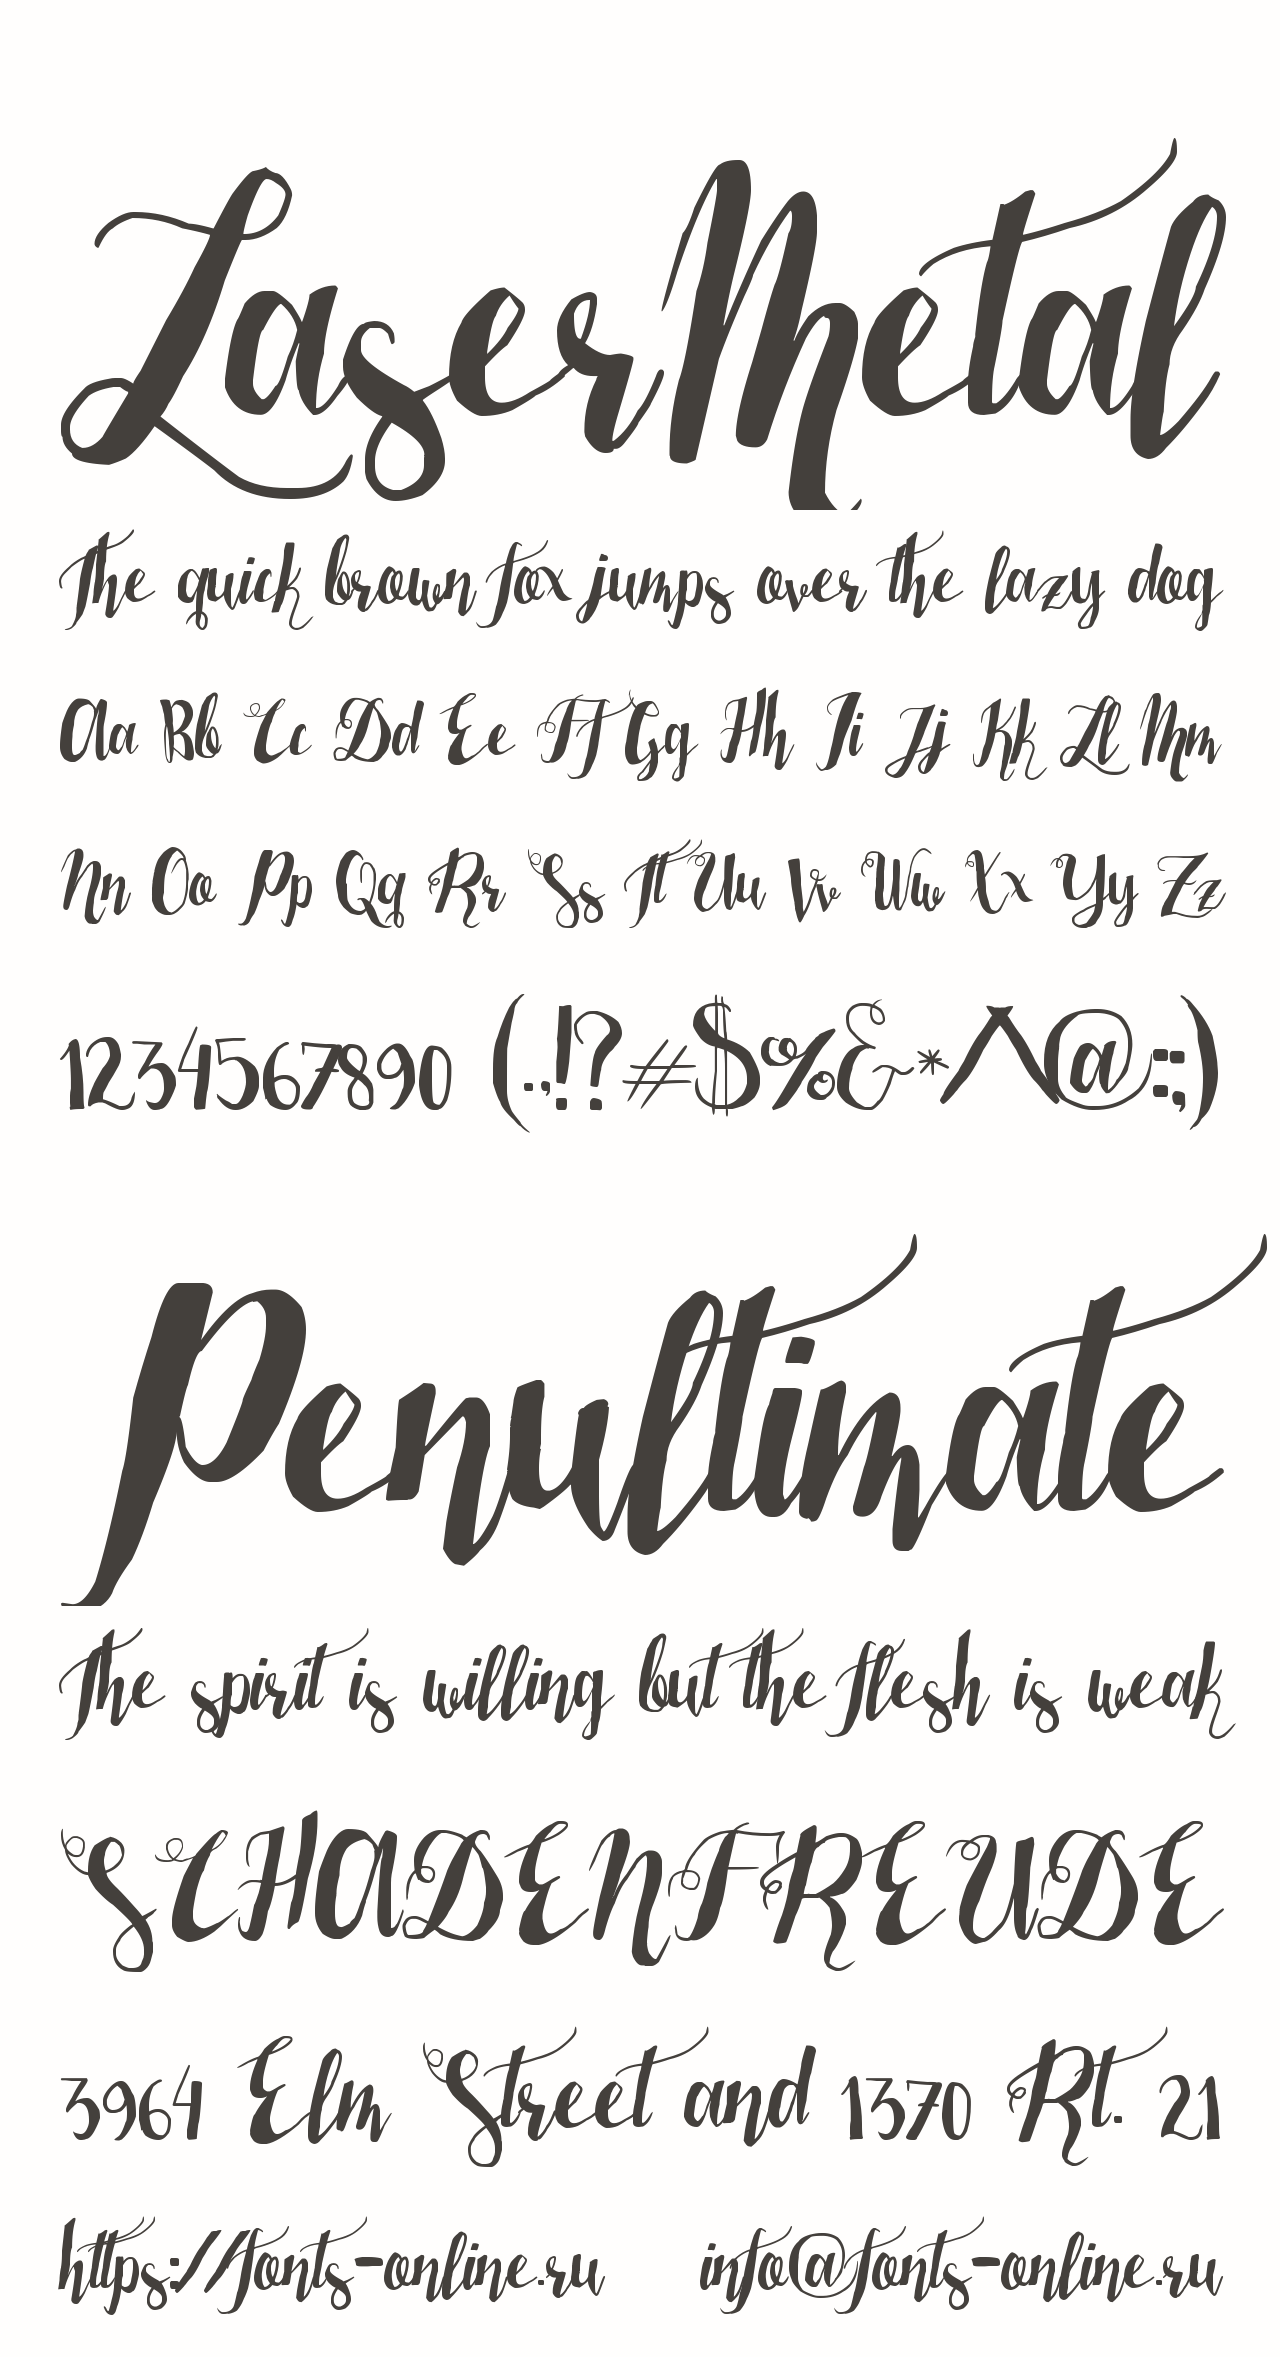 LaserMetal
The quick brown fox jumps over the lazy dog
Aa Bb Cc Dd Ee Ff Gg Hh Ii Jj Kk Ll Mm
Nn Oo Pp Qq Rr Ss Tt Uu Vv Ww Xx Yy Zz
1234567890 (.,!?#$%&*^@:;)
Penultimate
The spirit is willing but the flesh is weak
SCHADENFREUDE
3964 Elm Street and 1370 Rt. 21
https://fonts-online.ru info@fonts-online.ru